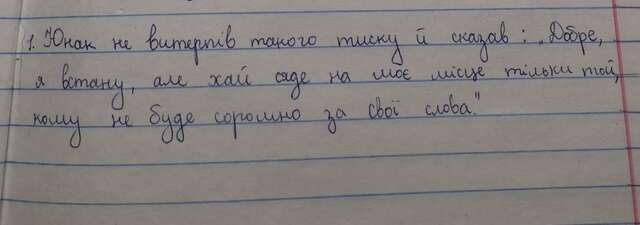 1. Юнак не витерпів такого тиску й сказав: „Добре,
я встану, але хай сяде на моє місце тільки той,
кому не буде соромно за свої слова."